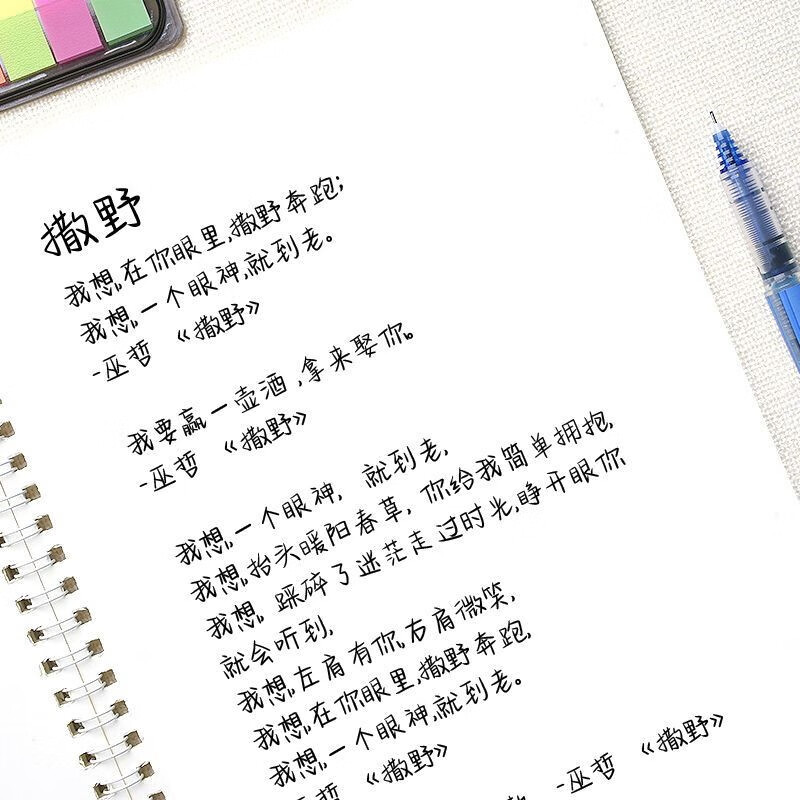 撒野
我想,在你眼里,撒野奔跑;
我想,一个眼神,就到老。
-巫哲 《撒野》
我要赢一壶酒,拿来娶你。
-巫哲 《撒野》
我想,一个眼神, 就到老,
我想,抬头暖阳春草, 你给我简单拥抱,
我想, 踩碎了迷茫走过时光,睁开眼你
就会听到,
我想,左肩有你,右肩微笑,
我想,在你眼里,撒野奔跑,
我想,一个眼神,就到老。
哲 《撒野》
-巫哲 《撒野》